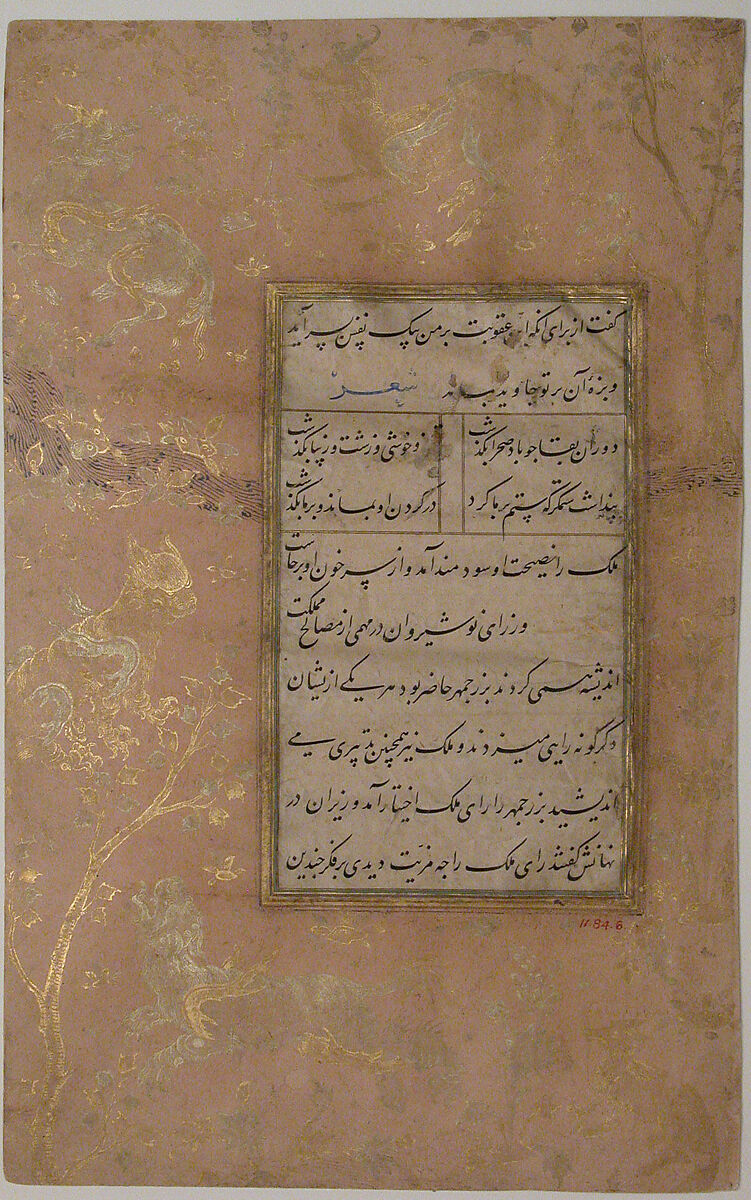 گفت از برای آنکه این عقوبت بر من بیک نفس بسر آید
و بزهٔ آن بر تو جاوید بماند شعر
دوران بقا چو باد صحرا بگذشت و خوشی و زشت و زیبا بگذشت
پنداشت ستمگر که ستم بر ما کرد در گردن او بماند و بر ما بگذشت
ملک را نصیحت او سودمند آمد و از سر خون او برخاست
وزرای نوشیروان در مهمی از مصالح مملکت
اندیشه همی کردند بزرجمهر حاضر بود هر یکی از یشان
دگرگونه رایی میزدند و ملک نیز همچنین تدبیری می
اندیشید بزرجمهر را رای ملک اختیار آمد وزیران در
نهانش گفتند رای ملک را چه مزیت دیدی بر فکر چندین
11.84.6